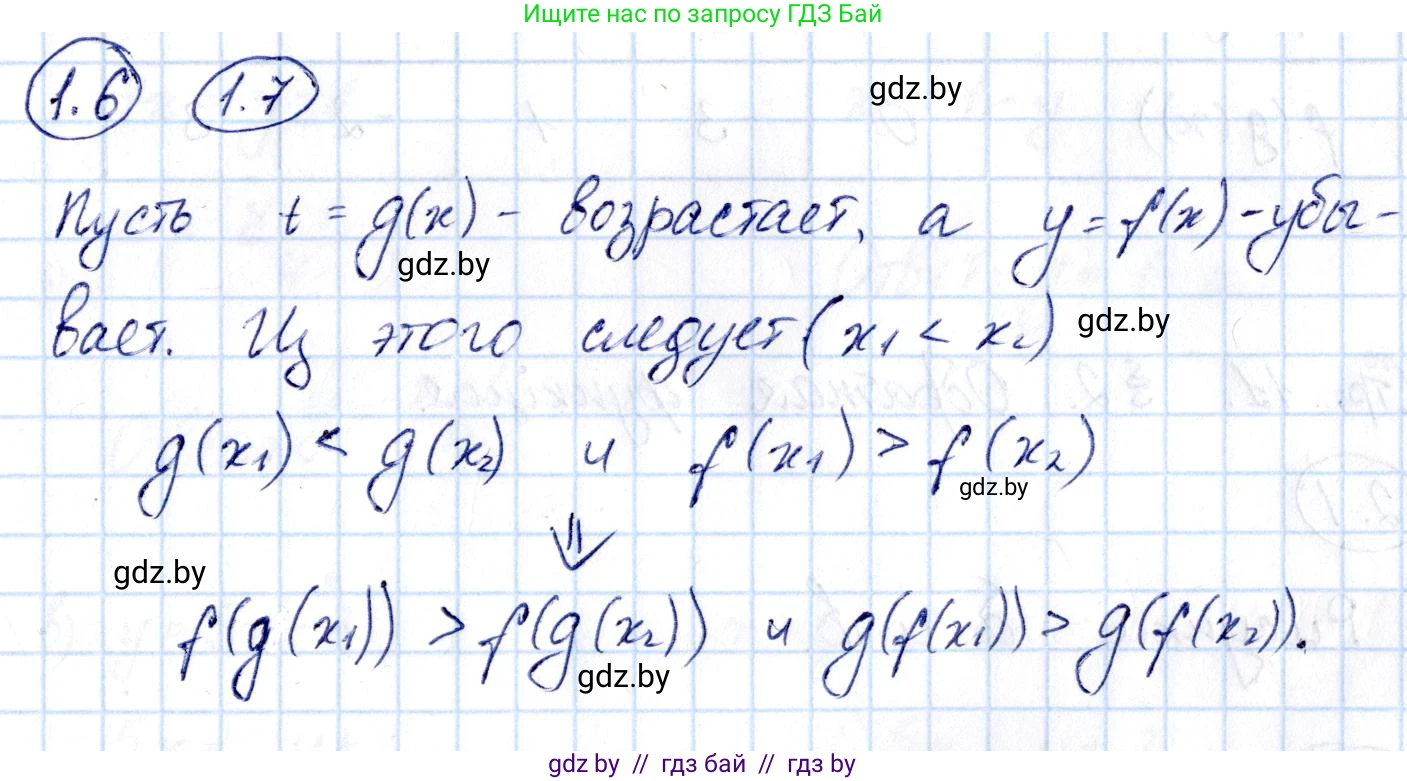 Ищите нас по запросу ГДЗ Бай
1.6 1.7
gdz.by
Пусть t = g(x) - возрастает, а y = f(x) - убы-
gdz.by
вает. Из этого следует (x₁ < x₂)
gdz.by
g(x₁) < g(x₂) и f(x₁) > f(x₂)
gdz.by
⇓
gdz.by
f(g(x₁)) > f(g(x₂)) и g(f(x₁)) > g(f(x₂)).
gdz.by
gdz by // гдз бай // гдз by